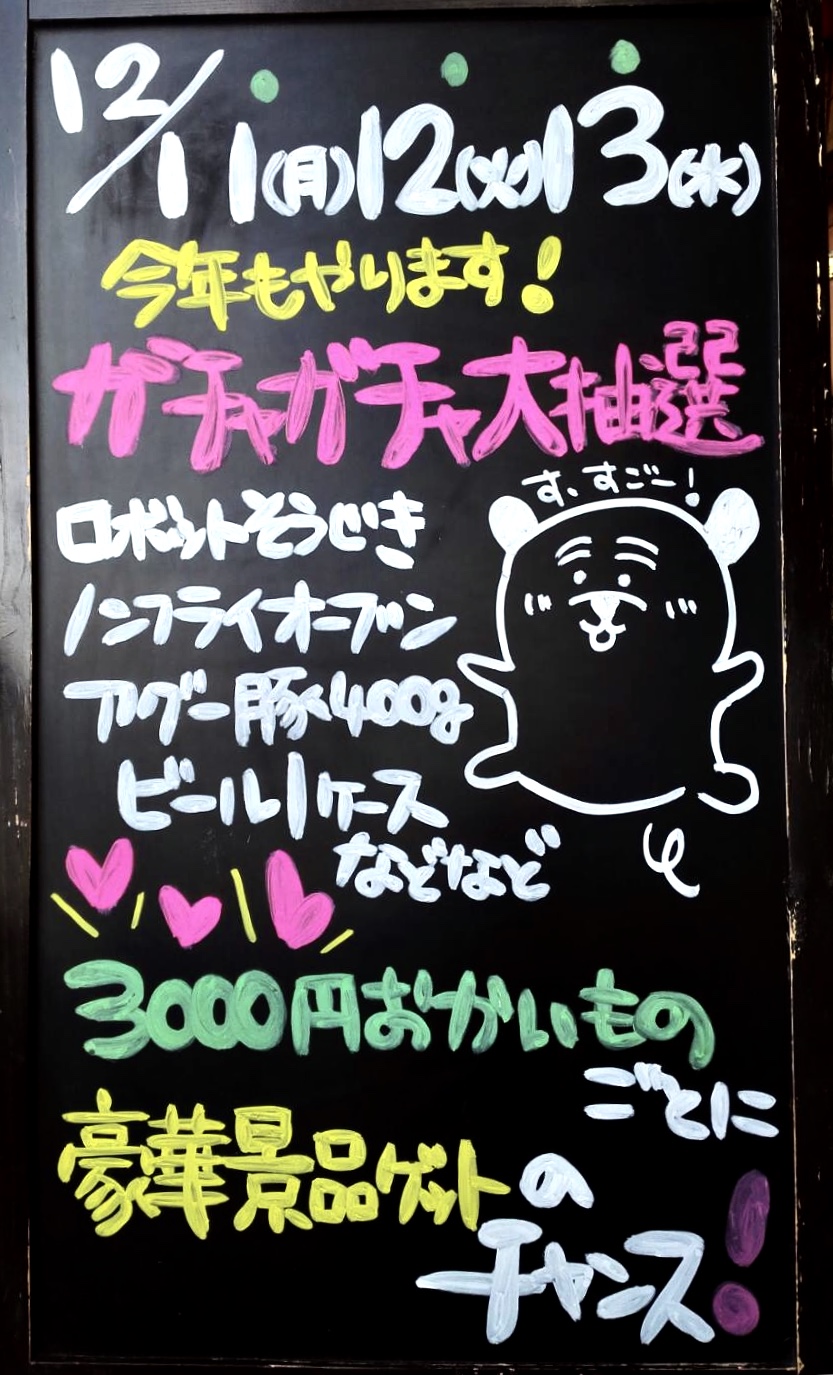 12/11(月)12(火)13(水)
今年もやります!
ガチャガチャ大抽選
す、すごー!
ロボットそうじき
ノンフライオーブン
アグー豚400g
ビール1ケース
などなど
3000円おかいもの
ごとに
豪華景品ゲットの
チャンス!